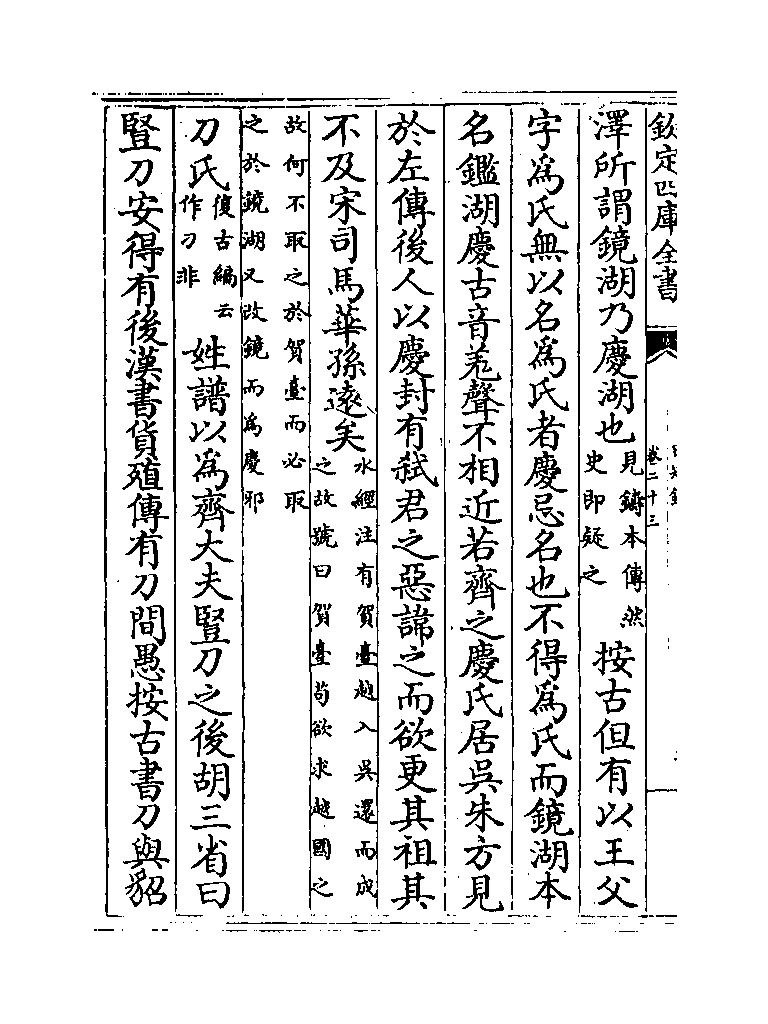 欽定四庫全書
卷二十三
澤所謂鏡湖乃慶湖也見鑄本傳然史即疑之按古但有以王父
字為氏無以名為氏者慶忌名也不得為氏而鏡湖本
名鑑湖慶古音羌聲不相近若齊之慶氏居吳朱方見
於左傳後人以慶封有弑君之惡諱之而欲更其祖其
不及宋司馬華孫遠矣水經注有賀臺越入吳還而成之故號曰賀臺苟欲求越國之
故何不取之於賀臺而必取之於鏡湖又改鏡而為慶邪
刀氏復古編云作刁非姓譜以為齊大夫豎刀之後胡三省曰
豎刀安得有後漢書貨殖傳有刀間愚按古書刀與貂